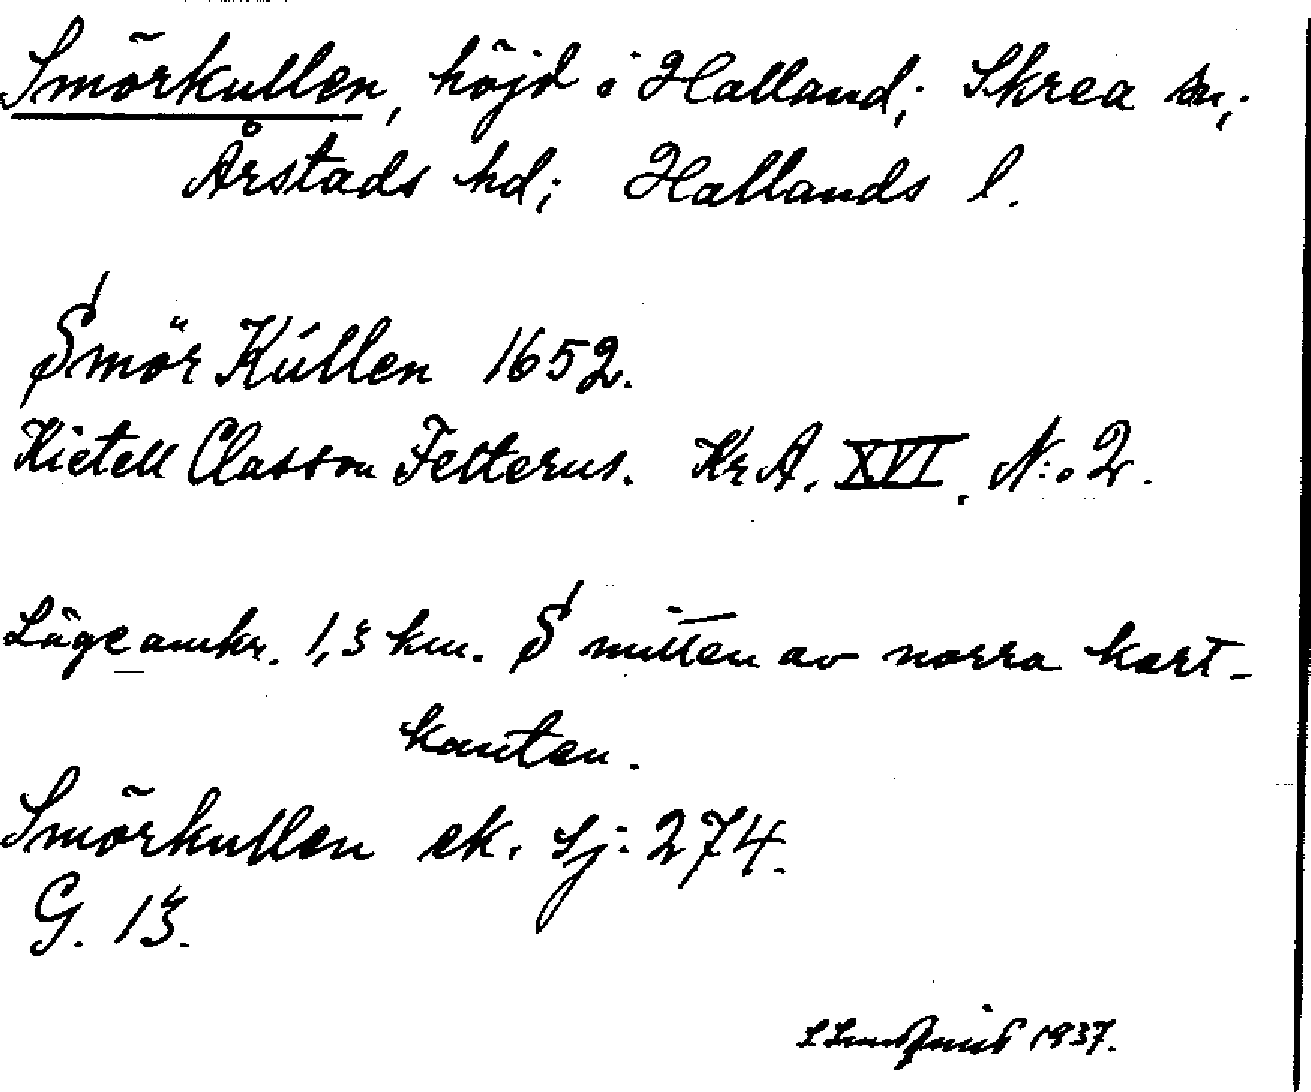 Smörkullen, höjd i Halland; Skrea sn;
Årstads hd; Hallands l.
Smör Kúllen 1652.
Kietell Classon Felterus. KrA. XVI. N:o 2.
Läge omkr. 1,3 km. S mitten av norra kart-
kanten.
Smörkullen ek. Sj: 274.
G. 13.
S Lundquist 1937.